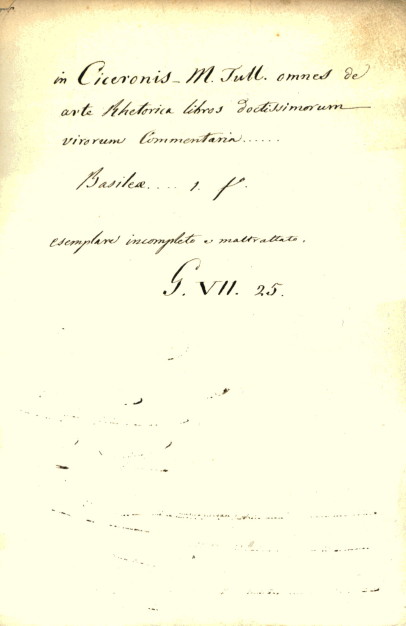 in Ciceronis - M. Tull. omnes de
arte Rhetorica libros doctissimorum
virorum Commentaria......
Basileæ.... 1. f.
esemplare incompleto e maltrattato.
G. VII. 25.